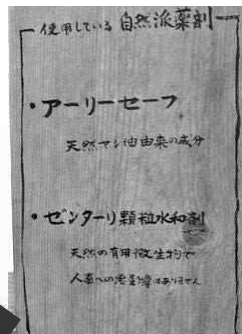 使用している 自然派薬剤
・アーリーセーフ
天然ヤシ油由来の成分
・ゼンターリ顆粒水和剤
天然の有用微生物で
人畜への悪影響はありません